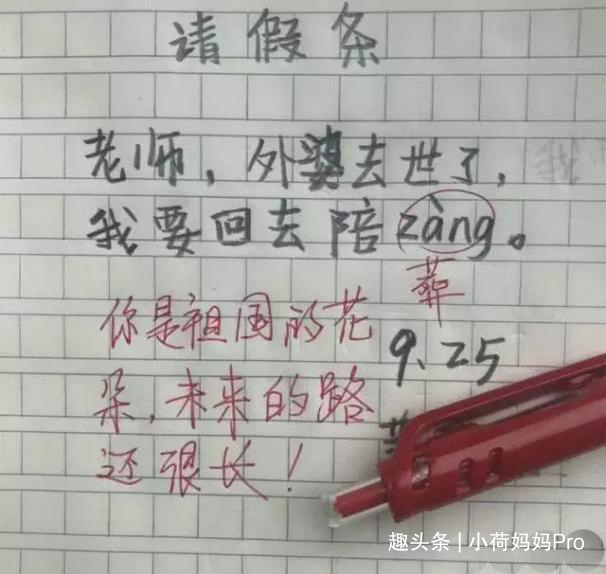 请假条
老师，外婆去世了，
我要回去陪zàng。
葬
你是祖国的花
朵，未来的路
还很长！
9.25
趣头条 | 小荷妈妈Pro